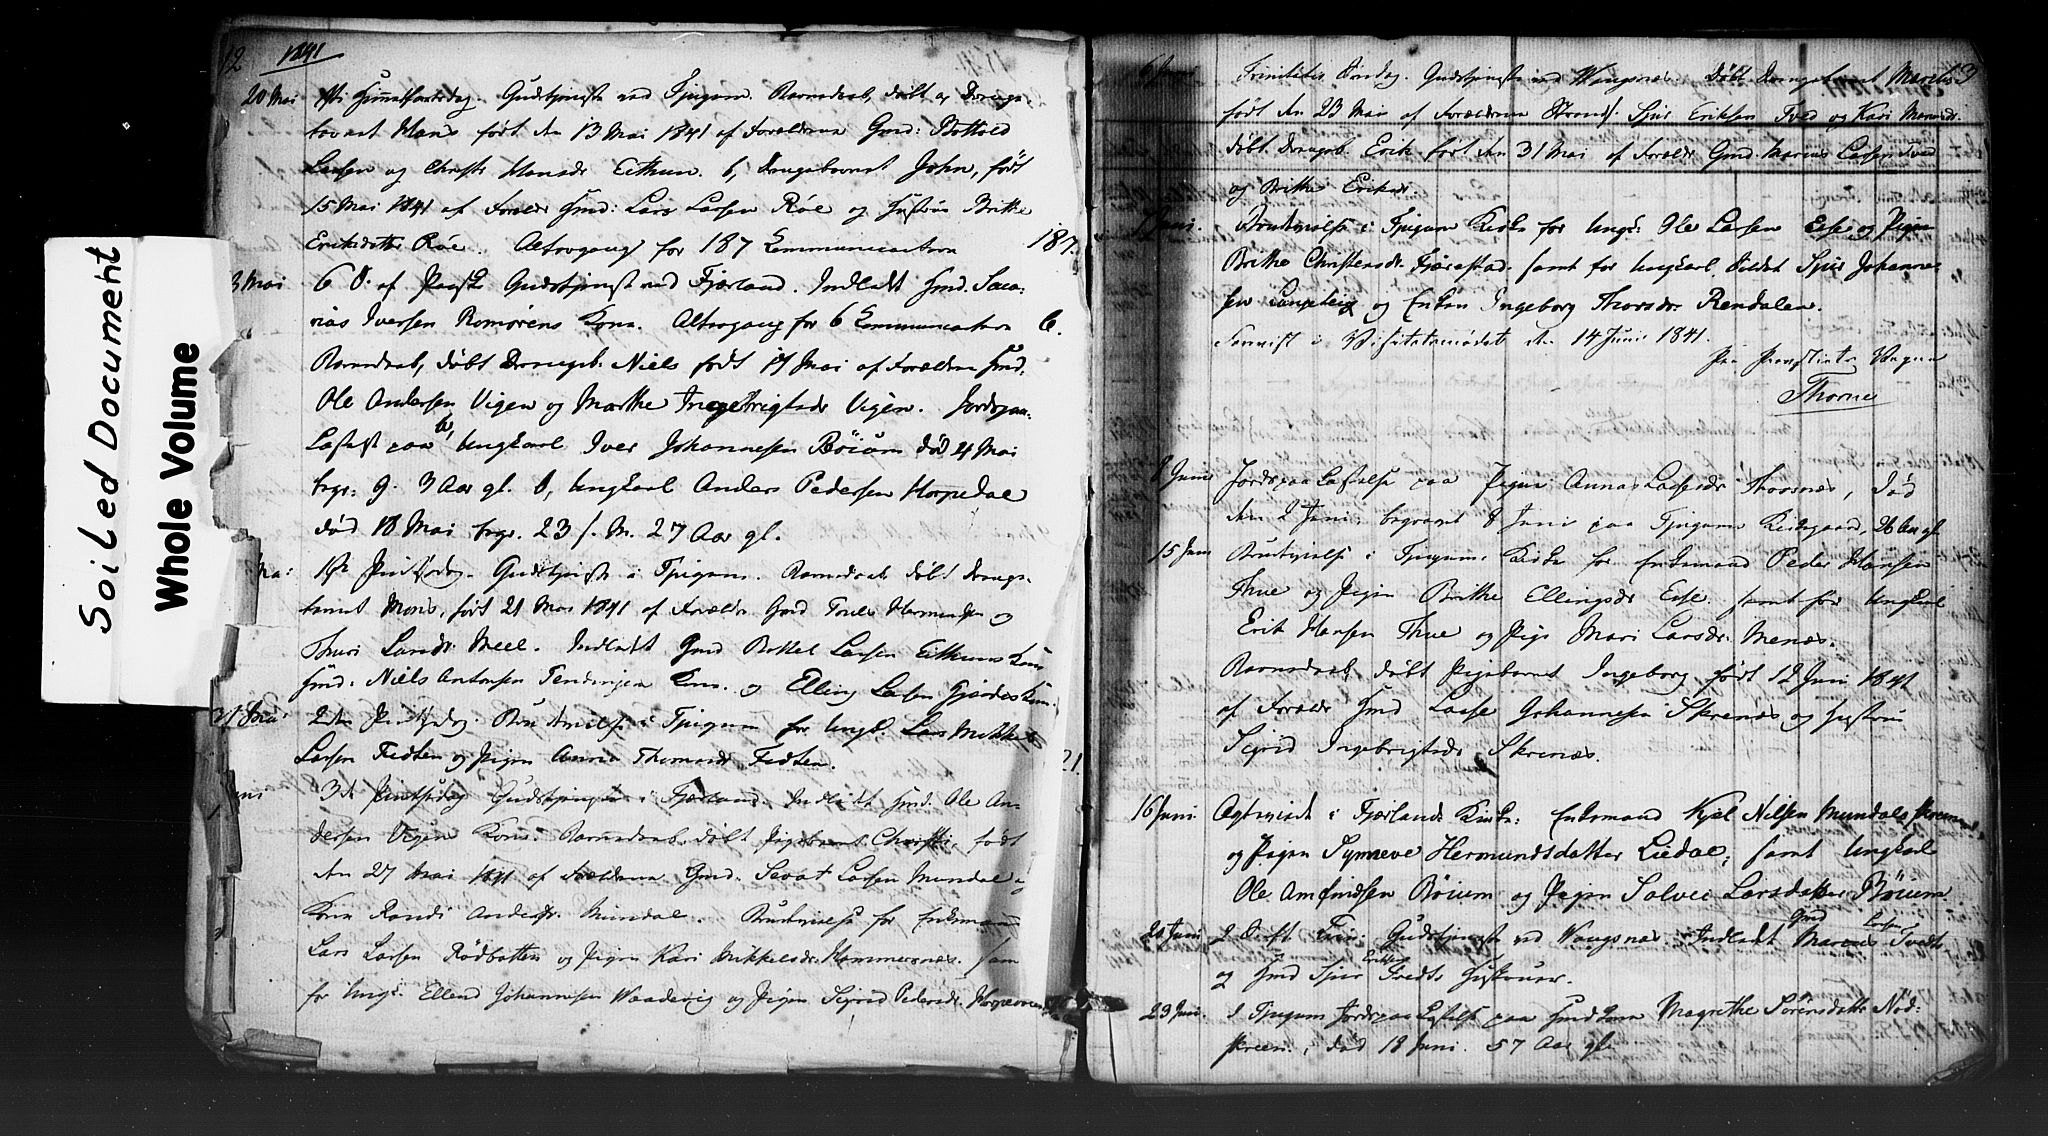 12 1841
20 Mai Christi Himmelfartsdag. Gudstjeneste ved Tjugum. Barnedaab, døbt a, Drenge-
barnet Hans født den 13 Mai 1841 af Forældrene Gmd: Bothold
Larsen og Christi Hansdr Eithun. b, Drengebarnet John, født
15 Mai 1841 af Forældr Hmd: Lars Larsen Røe og Hustrue Brithe
Eriksdatter Røe. Altergang for 187 Communicantere 187.
3 Mai 6 S. af Paaske Gudstjeneste ved Fjærland. Indledt Hmd. Saca-
rias Iversen Romørens Kone. Altergang for 6 Communicantere 6.
Barnedaab, døbt Drengeb. Niels født 17 Mai af Forældrene Hmd.
Ole Andersen Vigen og Marthe Ingebrigtsdr Vigen. Jordpaa-
kastelse paa a, Ungkarl Iver Johannesen Bøium død 4 Mai
begr: 9. 3 Aar gl. b, Ungkarl Anders Pedersen Horpedal
død 18 Mai begr. 23 s. M. 27 Aar gl.
Mai 1ste Pintsedag. Gudstjeneste i Tjugum. Barnedaab døbt Drenge-
barnet Mons, født 21 Mai 1841 af Forældr Gmd Truls Hermundsen og
Thuri Larsdr Meel. Indledt Gmd Bottel Larsen Eithuns Kone
Hmd: Niels Antonsen Tendingen Kone og Elling Larsen Gjærdes Kone.
31 Mai 2den Pintsedag. Brudevielse i Tjugum for Ungk. Lars Mikkel
Larsen Fedten og Pigen Anna Thomasdr Fedten. 21.
Juni 3die Pintsedag Gudstjeneste i Fjærland. Indledt Hmd. Ole An-
dersen Vigen Kone. Barnedaab, døbt Pigebarnet Christi, født
den 27 Mai 1841 af Forældrene Gmd. Sevat Larsen Mundal og
Kone Randi Andersdr. Mundal. Brudevielse for Enkemand
Lars Larsen Rødbotten og Pigen Kari Mikkelsdr. Hammersnæs. sam
for Ungk. Ellend Johannesen Waadevig og Pigen Sigrid Pedersdr.
6 Juni Trinitatis Søndag. Gudstjeneste ved Wangsnæs. Døbt Drengebarnet 3
født den 23 Mai af Forældrene Strands. Sjur Eriksen Tved og Kari
døbt Drengeb. Erik født den 31 Mai af Forældr Gmd. Marcus Larsen Tved
og Brithe Eriksdr.
Juni. Brudevielse i Tjugum Kirke for Ungk: Ole Larsen Esse og Pigen
Brithe Christensdr. Fjærestad. samt for Ungkarl Soldat Sjur Johanne-
sen og Enken Ingeborg Thorsdr. Rendalen.
Foreviist i Visitatsmødet den 14 Juni 1841.
Paa Provstiets Vegne
Thorne
8 Juni Jordpaakastelse paa Pigen Anna Lassesdr Thorsnæs, død
den 2 Juni, begravet 8 Juni paa Tjugum Kirkegaard, 26 Aar gl
15 Juni Brudevielse i Tjugum Kirke for Enkemand Peder Hansen
Thue og Pigen Brithe Ellingsdr Esse. samt for Ungkarl
Erik Hansen Thue og Pige Mari Larsdr. Menæs.
Barnedaab, døbt Pigebarnet Ingeborg født 12 Juni 1841
af Forældr Hmd Lasse Johannesen Skrenæs og Hustrue
Sigrid Ingebrigtsdr Skrenæs.
16 Juni Ægteviede i Fjærlands Kirke: Enkemand Kjel Nilsen Mundals
og Pigen Synneve Hermundsdatter Liedal, samt Ungkarl
Ole Amfindsen Bøium og Pigen Solvei Larsdatter Bøium.
20 Juni 2 S. eft. Trin: Gudstjeneste ved Wangsnæs. Indledt Gmd Marcus Larsen Tvedts
og Hmd Sjur Eriksen Tvedts Hustruer.
23 Juni. I Tjugum Jordpaakastelse paa Hmd Kone Magrethe Sørensdatter Nød-
skreen, død 18 Juni. 57 Aar gl.
Soiled Document
Whole Volume